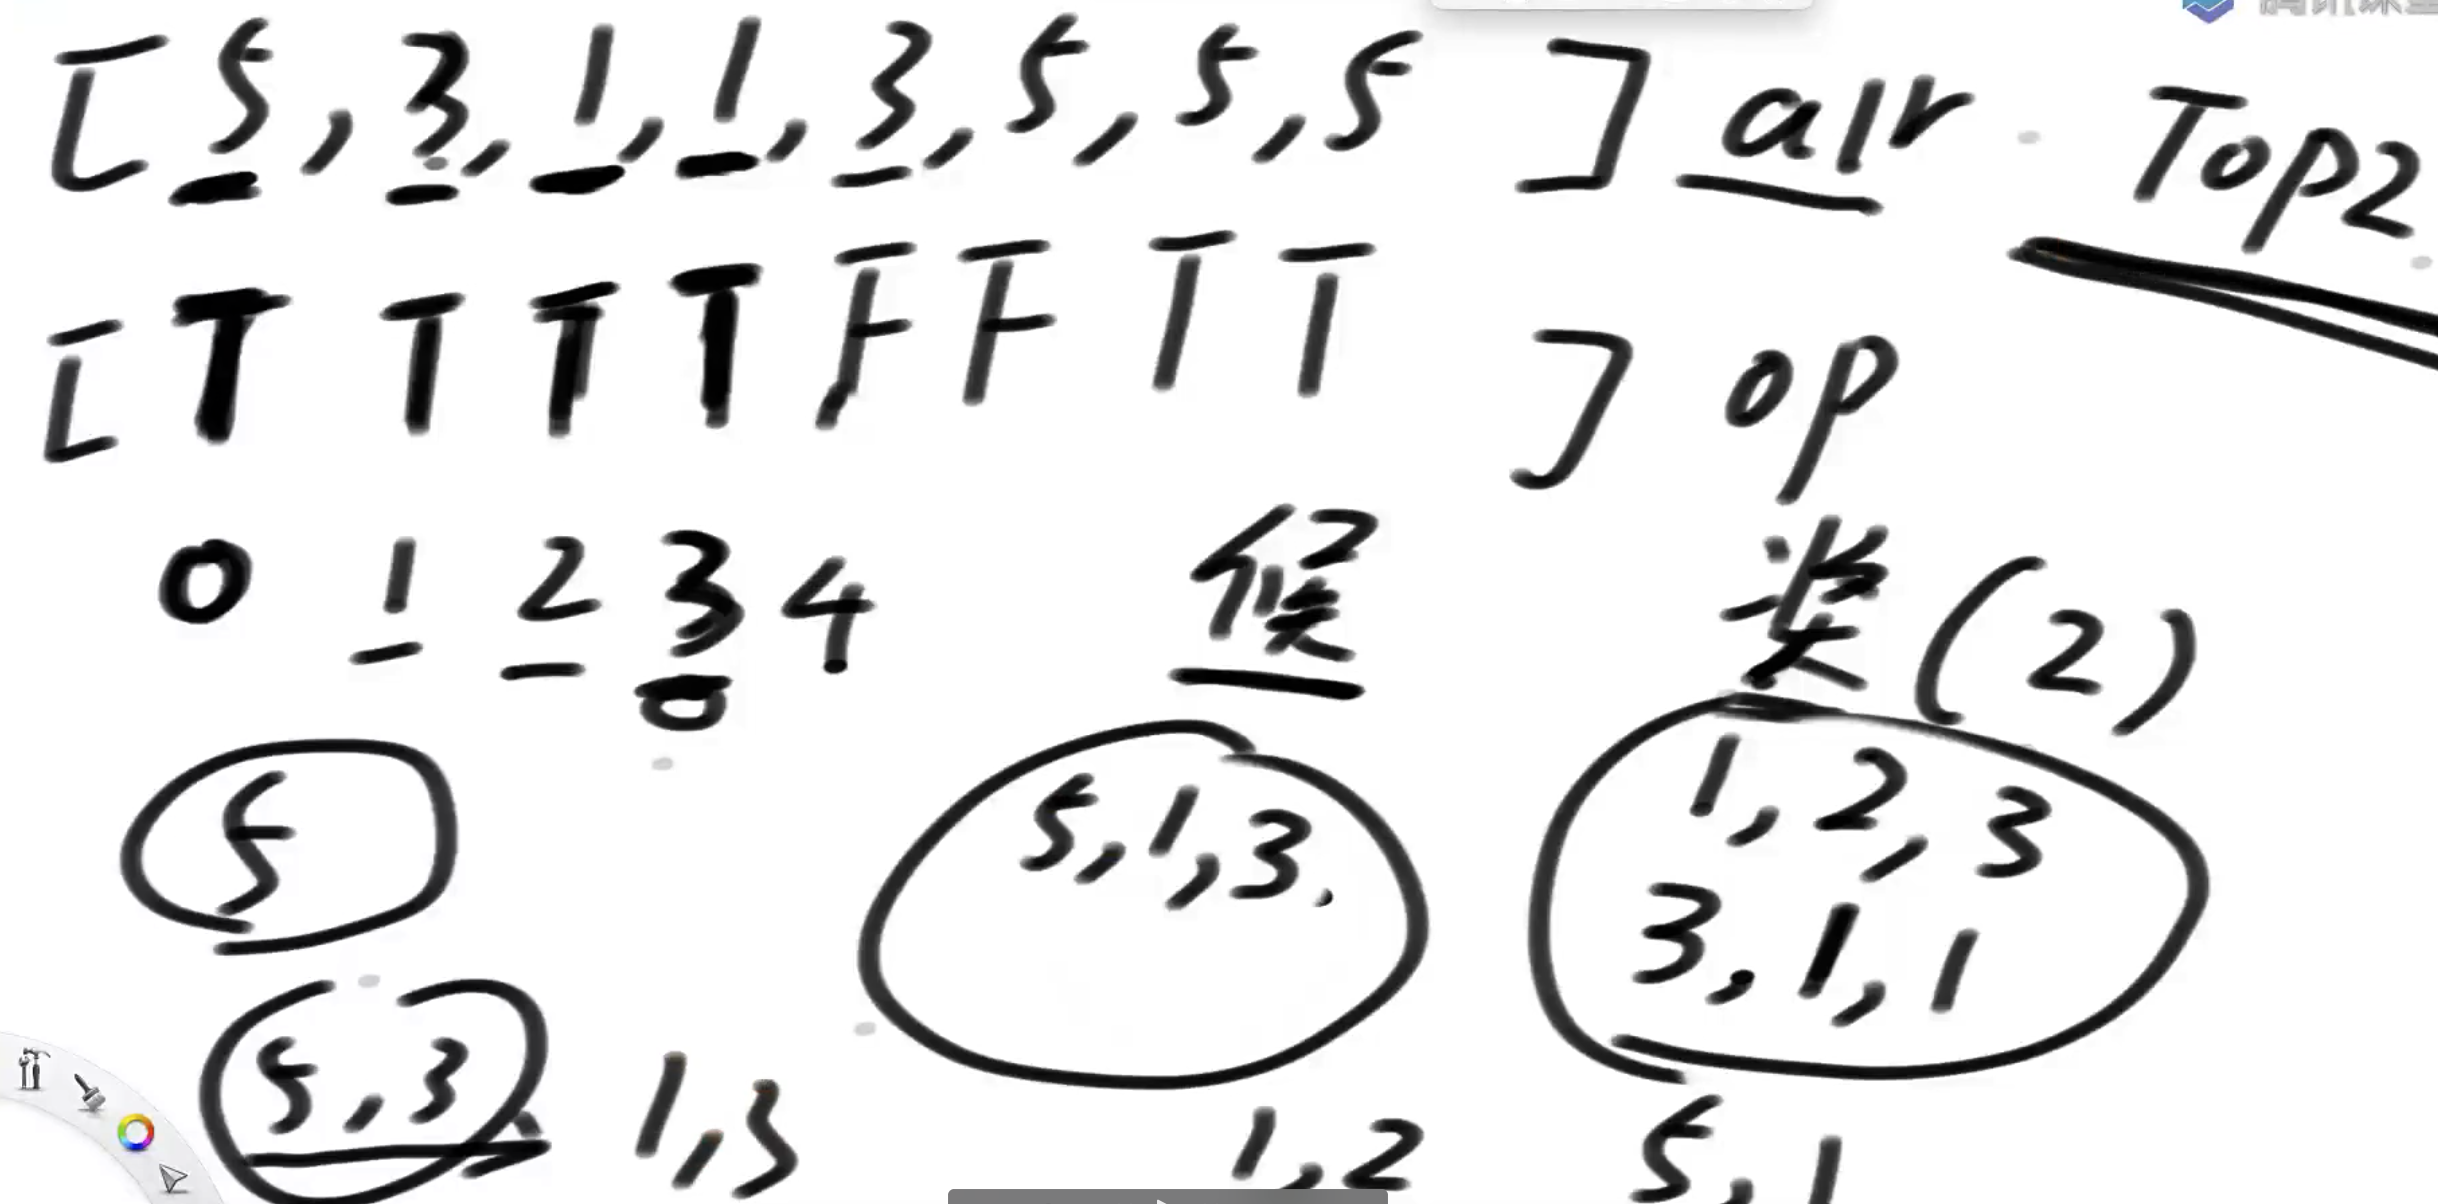 [5,3,1,1,3,5,5,5] arr Top2
[T T T T F F T T] op
0 1 2 3 4 候 奖(2)
5 5,1,3. 1,2,3
3,1,1
5,3 1,3 1,2 5,1